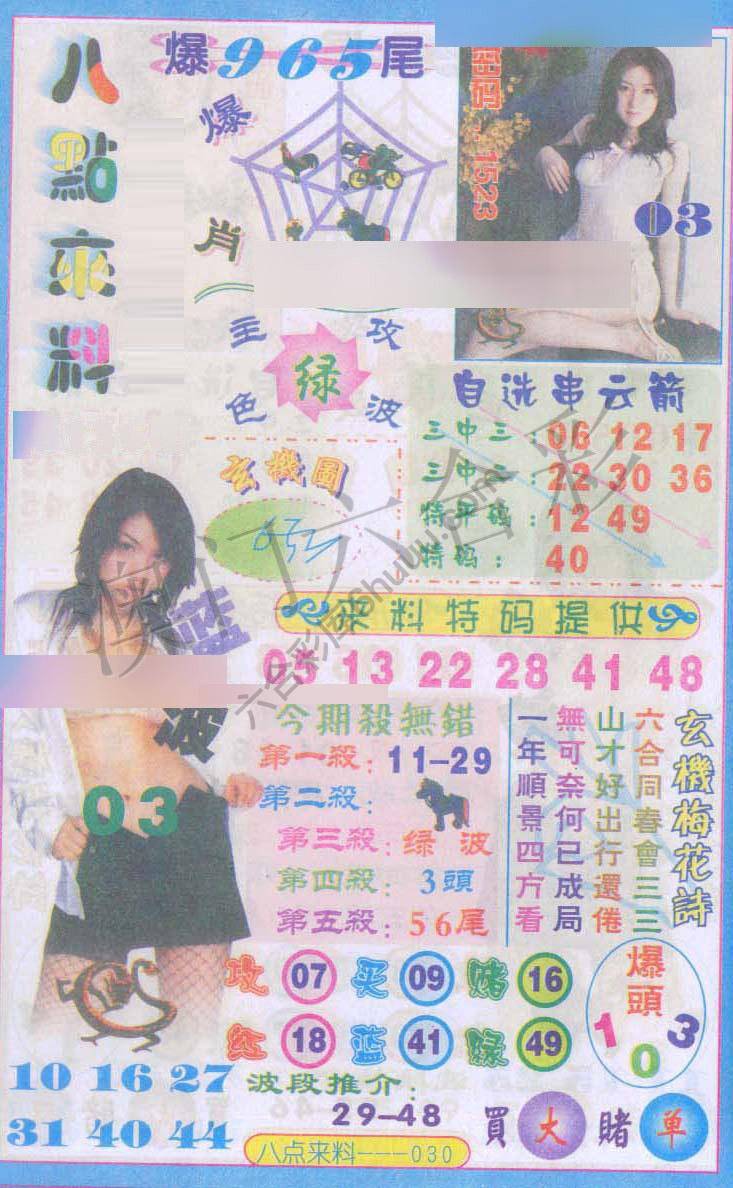 八點來料
爆965尾
爆肖
1523
03
主攻
绿
色波
自选串云箭
三中三:06 12 17
三中二:22 30 36
特平码:12 49
特码:40
玄機圖
蓝波
03
来料特码提供
05 13 22 28 41 48
今期殺無錯
第一殺:11-29
第二殺:
第三殺:绿波
第四殺:3頭
第五殺:56尾
玄機梅花詩
六合同春會三三
山才好出行還倦
無可奈何已成局
一年順景四方看
攻 07 买 09 赌 16
红 18 蓝 41 绿 49
爆頭
1 0 3
10 16 27
31 40 44
波段推介:
29-48
買大赌单
八点来料---030
澳门六合彩
六合彩库6huuu.com